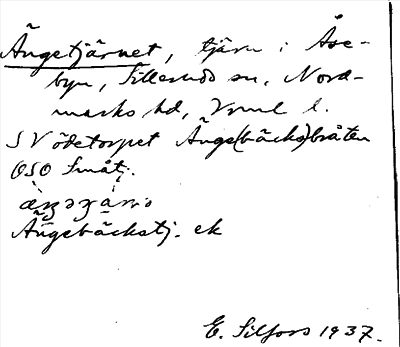 Ängetjärnet, tjärn i Åse-
byn, Sillerud sn, Nord-
marks hd, Vrml l.
SV ödetorpet Änge(bäcks)bråten
OSO Småtj.
Ängebäckstj. ek
E. Silfors 1937.